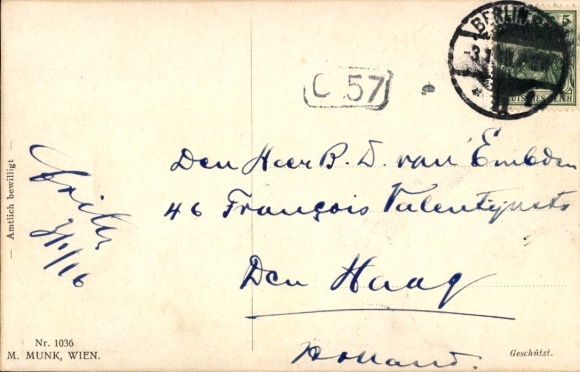 BERLIN
5
DEUTSCHES REICH
C 57
Den Heer B. D. van Embden
46 François Valentijnstr
Den Haag
Holland.
3/1/16
Amtlich bewilligt
Nr. 1036
M. MUNK, WIEN.
Geschützt.